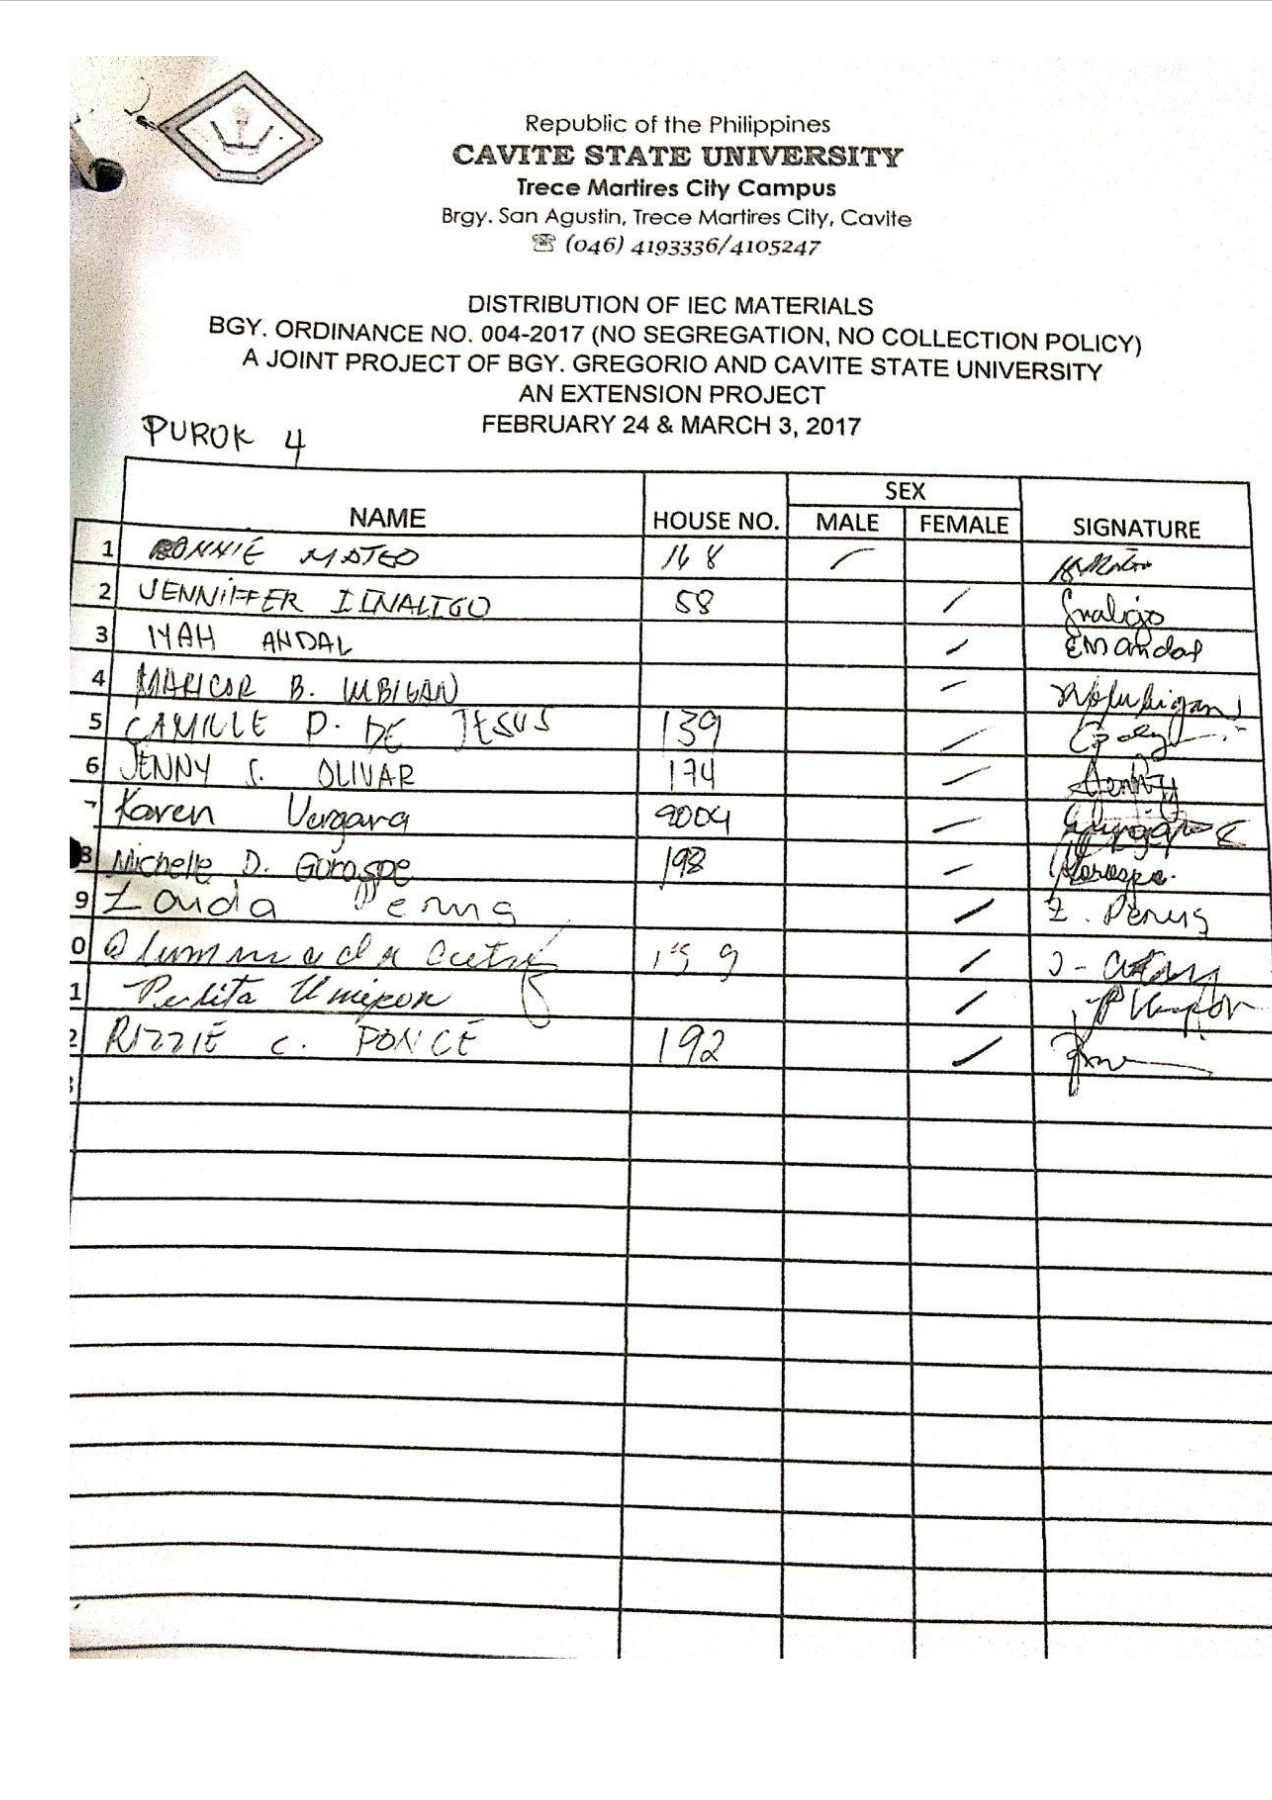 Republic of the Philippines
CAVITE STATE UNIVERSITY
Trece Martires City Campus
Brgy. San Agustin, Trece Martires City, Cavite
☏ (046) 4193336/4105247
DISTRIBUTION OF IEC MATERIALS
BGY. ORDINANCE NO. 004-2017 (NO SEGREGATION, NO COLLECTION POLICY)
A JOINT PROJECT OF BGY. GREGORIO AND CAVITE STATE UNIVERSITY
AN EXTENSION PROJECT
FEBRUARY 24 & MARCH 3, 2017
PUROK 4
SEX
NAME HOUSE NO. MALE FEMALE SIGNATURE
1 RONNIE MATEO 168
2 JENNIFFER I INALIGO 58 Inaligo
3 IYAH ANDAL EM Andal
4 MARICOR B. LUBIGAN
5 CAMILLE P. DE JESUS 139
6 JENNY S. OLIVAR 174 Jenny
Karen Vergara 9004
8 Michelle D. Goraspe 198 Goraspe
9 Zonida Penus Z. Penus
0 159
1 Perlita Umipon
2 RIZZIE C. PONCE 192